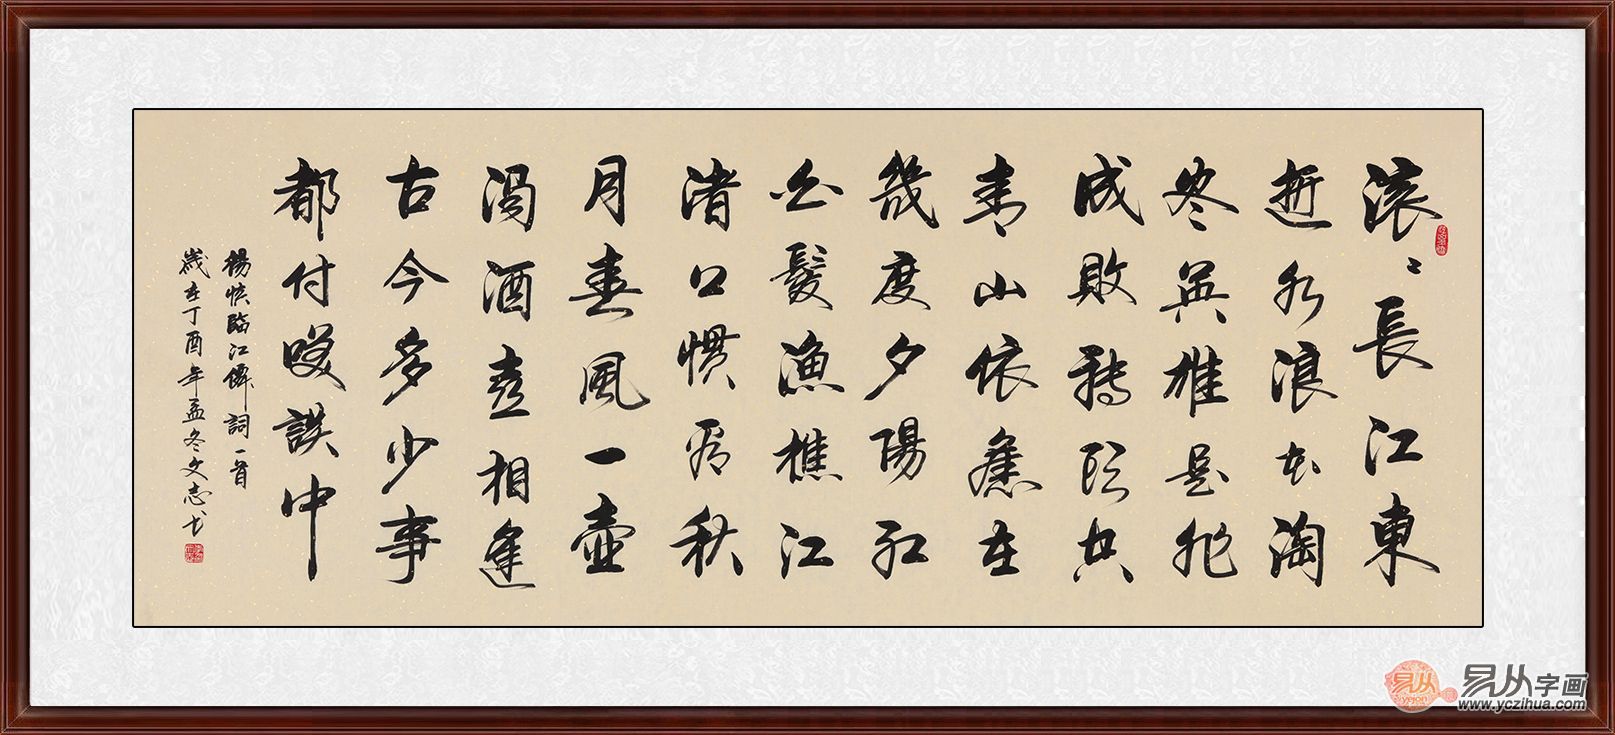 滚〻長江東
逝水浪花淘
尽英雄是非
成敗轉頭空
青山依舊在
幾度夕陽红
白髮漁樵江
渚口惯看秋
月春風一壶
濁酒喜相逢
古今多少事
都付笑談中
楊慎臨江僊詞一首
歲在丁酉年孟冬文志书
易从字画
yejoin
www.yczihua.com